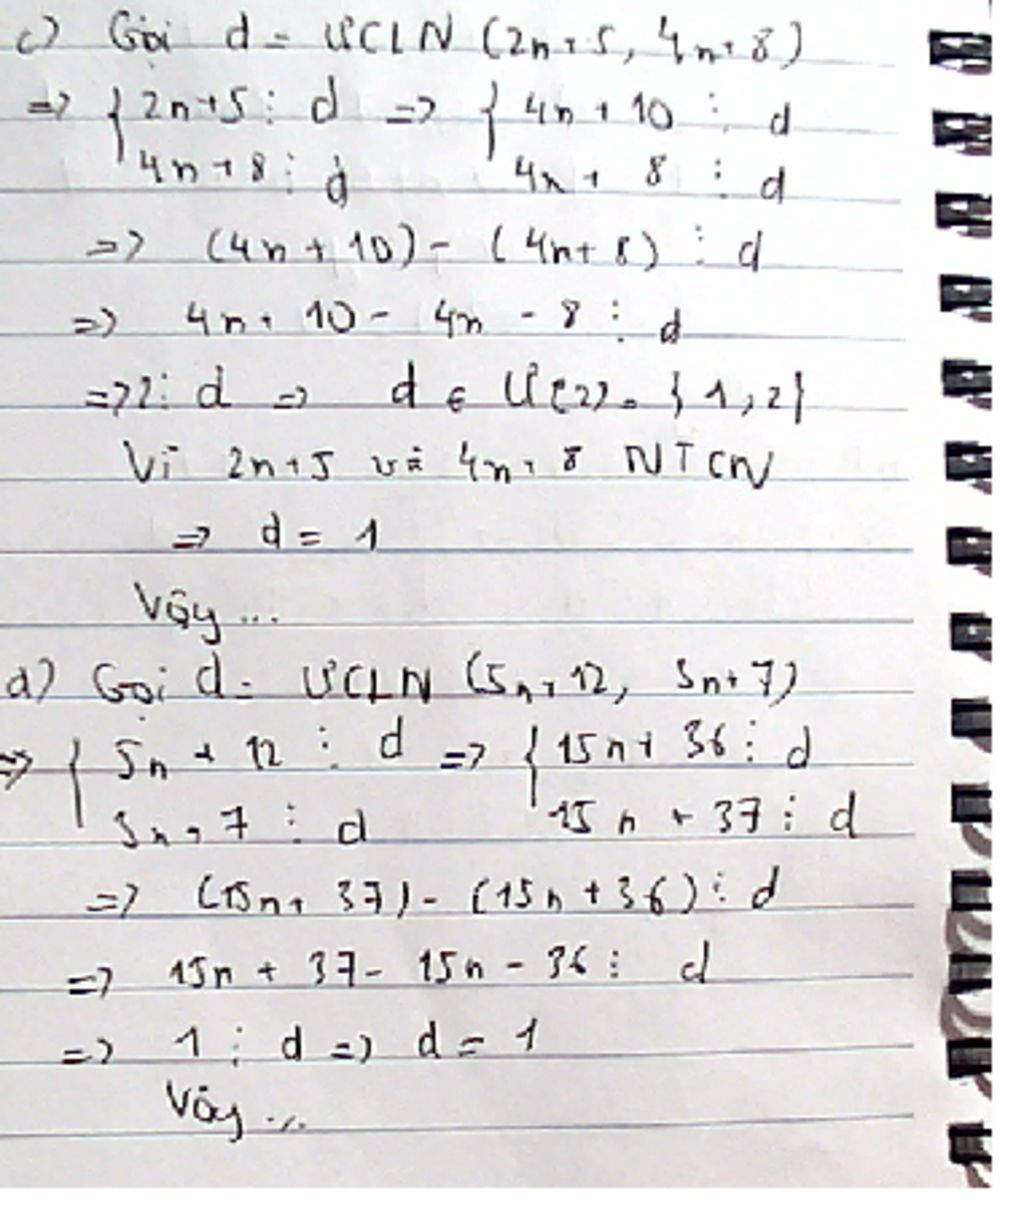 c) Gọi d = ƯCLN (2n+5, 4n+8)
=> { 2n+5 ⋮ d => { 4n + 10 ⋮ d
4n+8 ⋮ d 4n + 8 ⋮ d
=> (4n + 10) - (4n+8) ⋮ d
=> 4n + 10 - 4n - 8 ⋮ d
=> 2 ⋮ d => d ∈ Ư(2) = {1,2}
Vì 2n+5 và 4n+8 NTCN
=> d = 1
Vậy...
d) Gọi d = ƯCLN (5n+12, 3n+7)
=> { 5n + 12 ⋮ d => { 15n + 36 ⋮ d
3n+7 ⋮ d 15n + 37 ⋮ d
=> (15n+ 37) - (15n + 36) ⋮ d
=> 15n + 37 - 15n - 36 ⋮ d
=> 1 ⋮ d => d = 1
Vậy...